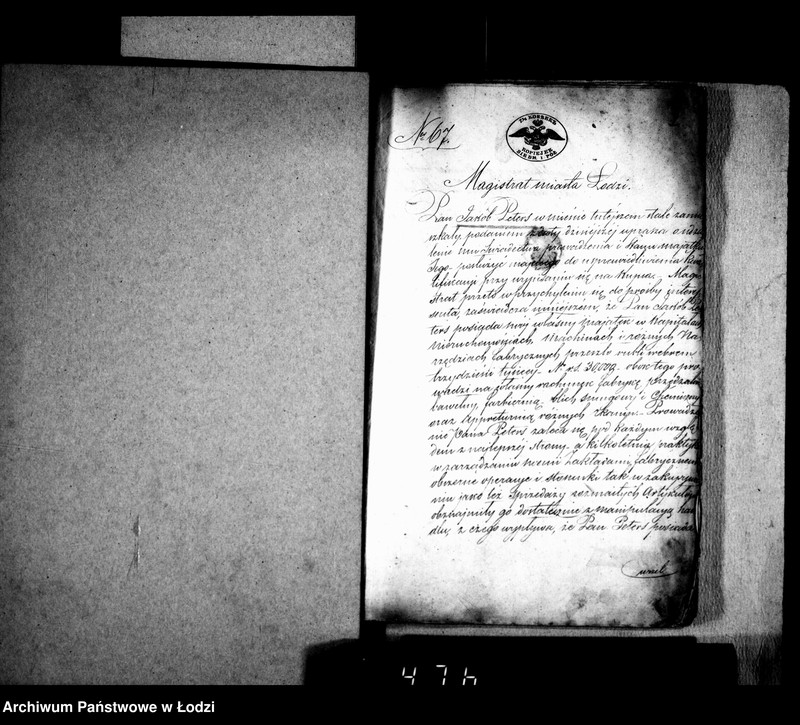 No 67.
7½ KOSREB
KOPIEJEK
SREBR. I POŁ
Magistrat miasta Łodzi.
Pan Jakób Peters w mieście tutejszem stale zamie
szkały, podaniem z daty dzisiejszej uprasza o udzie
lenie mu świadectwa prowadzenia i stanu majątku
Jego, posłużyć mającego do usprawiedliwienia Kwa
lifikacyi przy wpisaniu się na Kupca. - Magi
strat przeto w przychyleniu się do prośby interes
senta, zaświadcza niniejszem, że Pan Jakób Pe
ters posiada swój własny majątek w Kapitałach
Nieruchomościach, Machinach i różnych Na
rzędziach fabrycznych przeszło rubli srebrem
trzydzieści tysięcy - No r.s. 30,000. obok tego pro
wadzi na własny rachunek fabrykę przędzalni
bawełny, farbiernią
oraz Appreturnią różnych Tkanin. - Prowadze
nie Pana Peters zaleca się pod każdym wzglę
dem z najlepszej strony, a kilkoletnia praktyka
w zarządzaniu swemi zakładami fabrycznemi
obszerne operacye i stosunki tak w zakupywa
niu jako też Sprzedaży rozmaitych Artykułów
obznajmiły go dostatecznie z manipulacyą han
dlu, z czego wypływa, że Pan Peters
476
Archiwum Państwowe w Łodzi